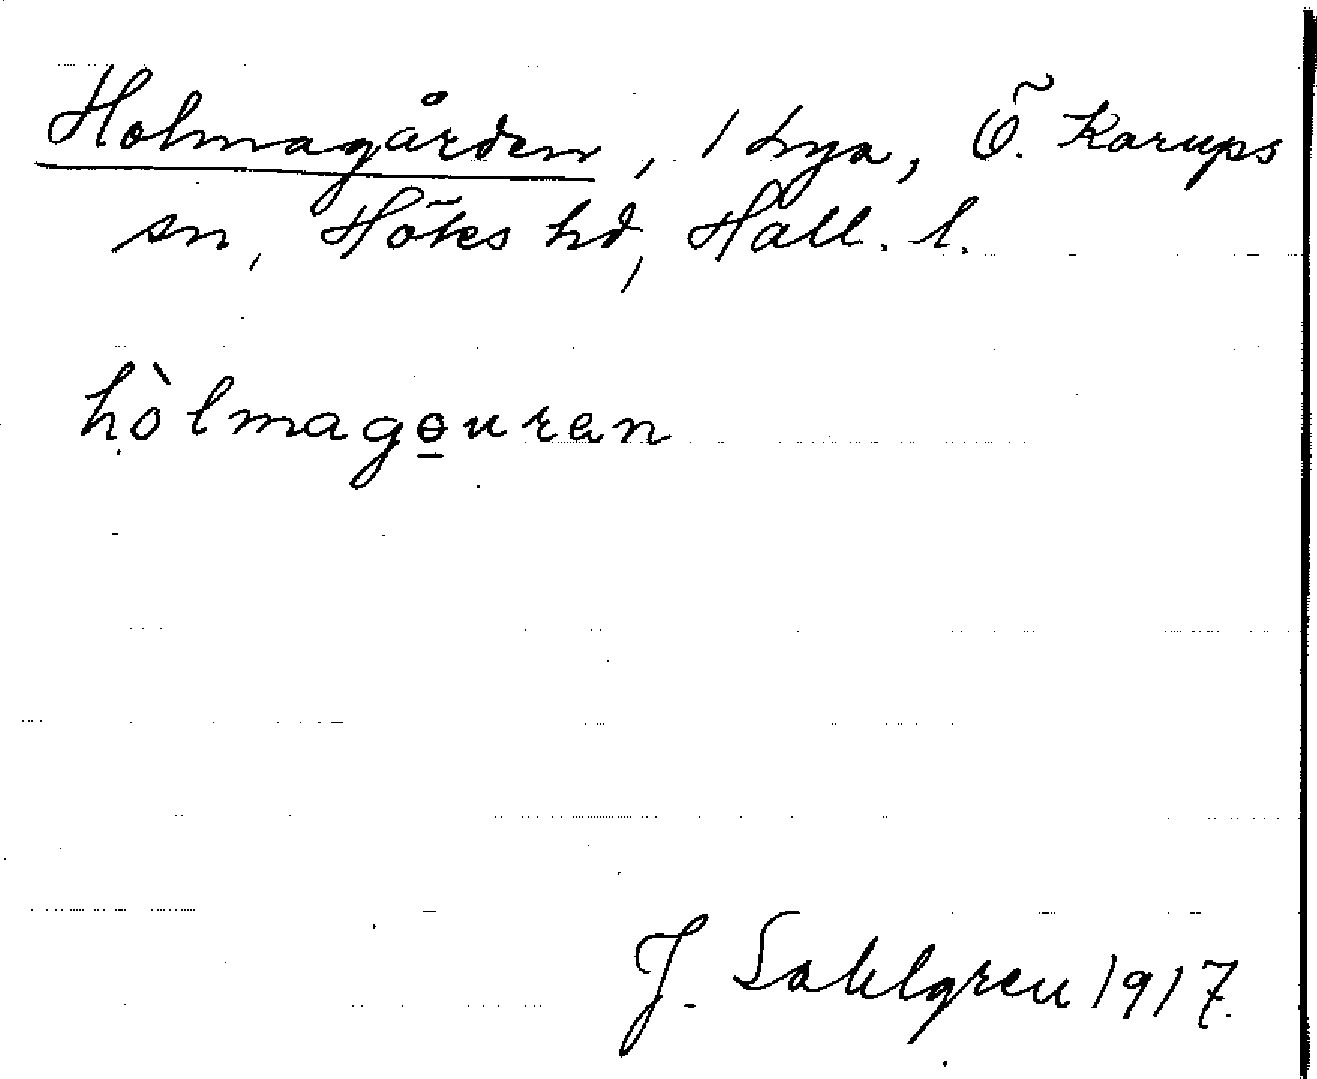 Holmagården, 1 Lya, Ö. Karups
sn, Höks hd, Hall. l.
hòlmagɵuran
J. Sahlgren 1917.